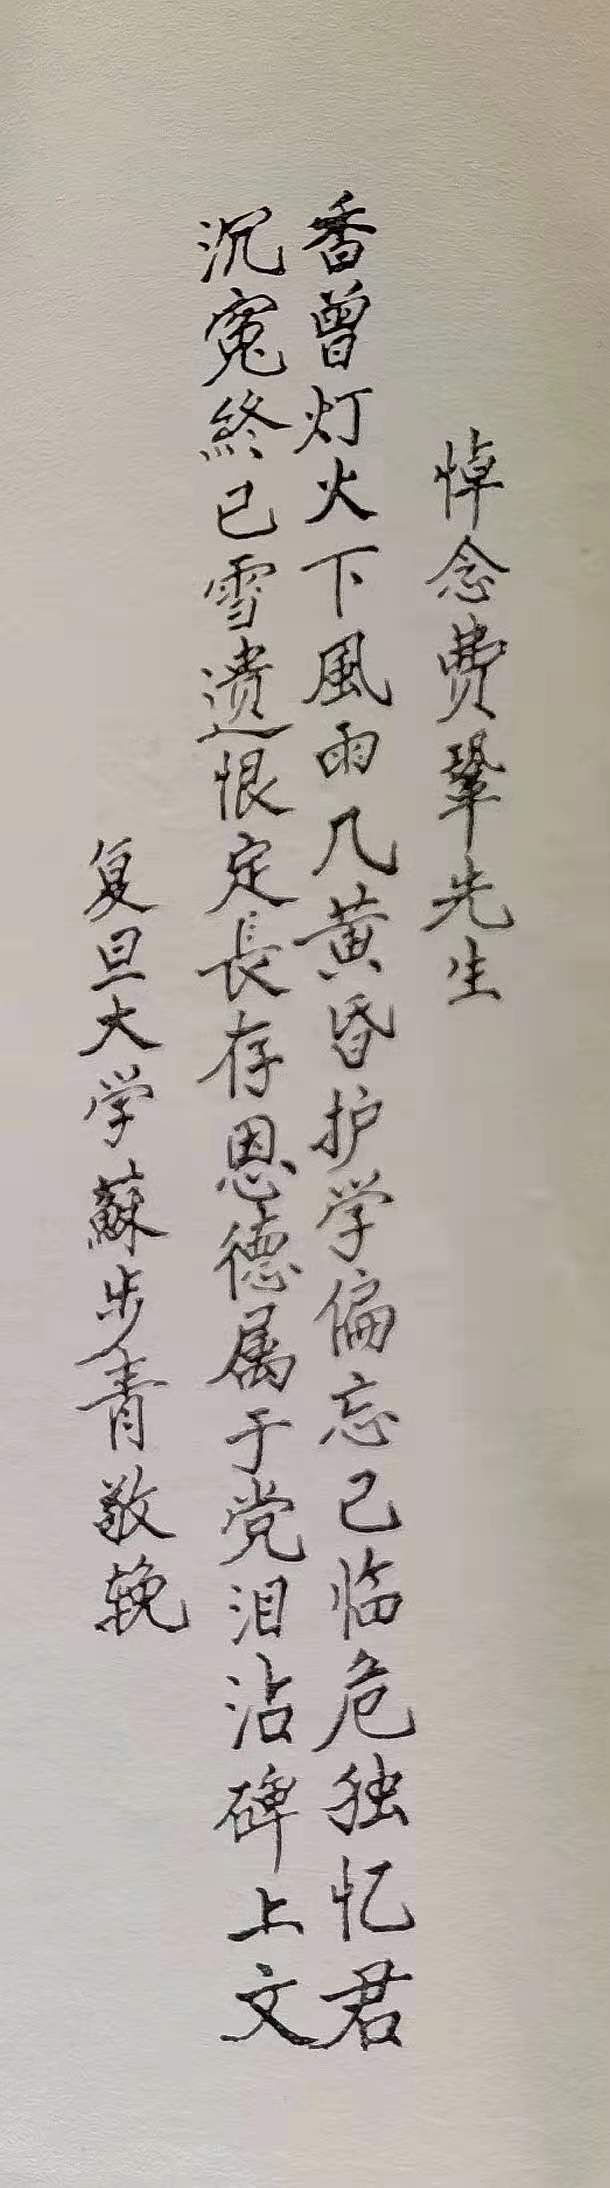 悼念费鞏先生
香曾灯火下風雨几黄昏护学偏忘己临危独忆君
沉寃終已雪遗恨定長存恩德属于党泪沾碑上文
复旦大学蘇步青敬挽